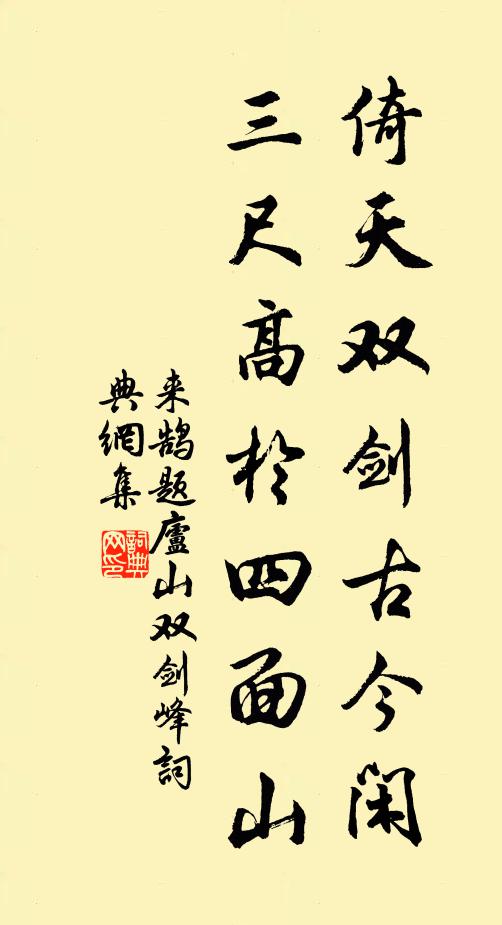 倚天双剑古今闲
三尺高於四面山
来鹄题廬山双剑峰詞
典網集
詞典
网印